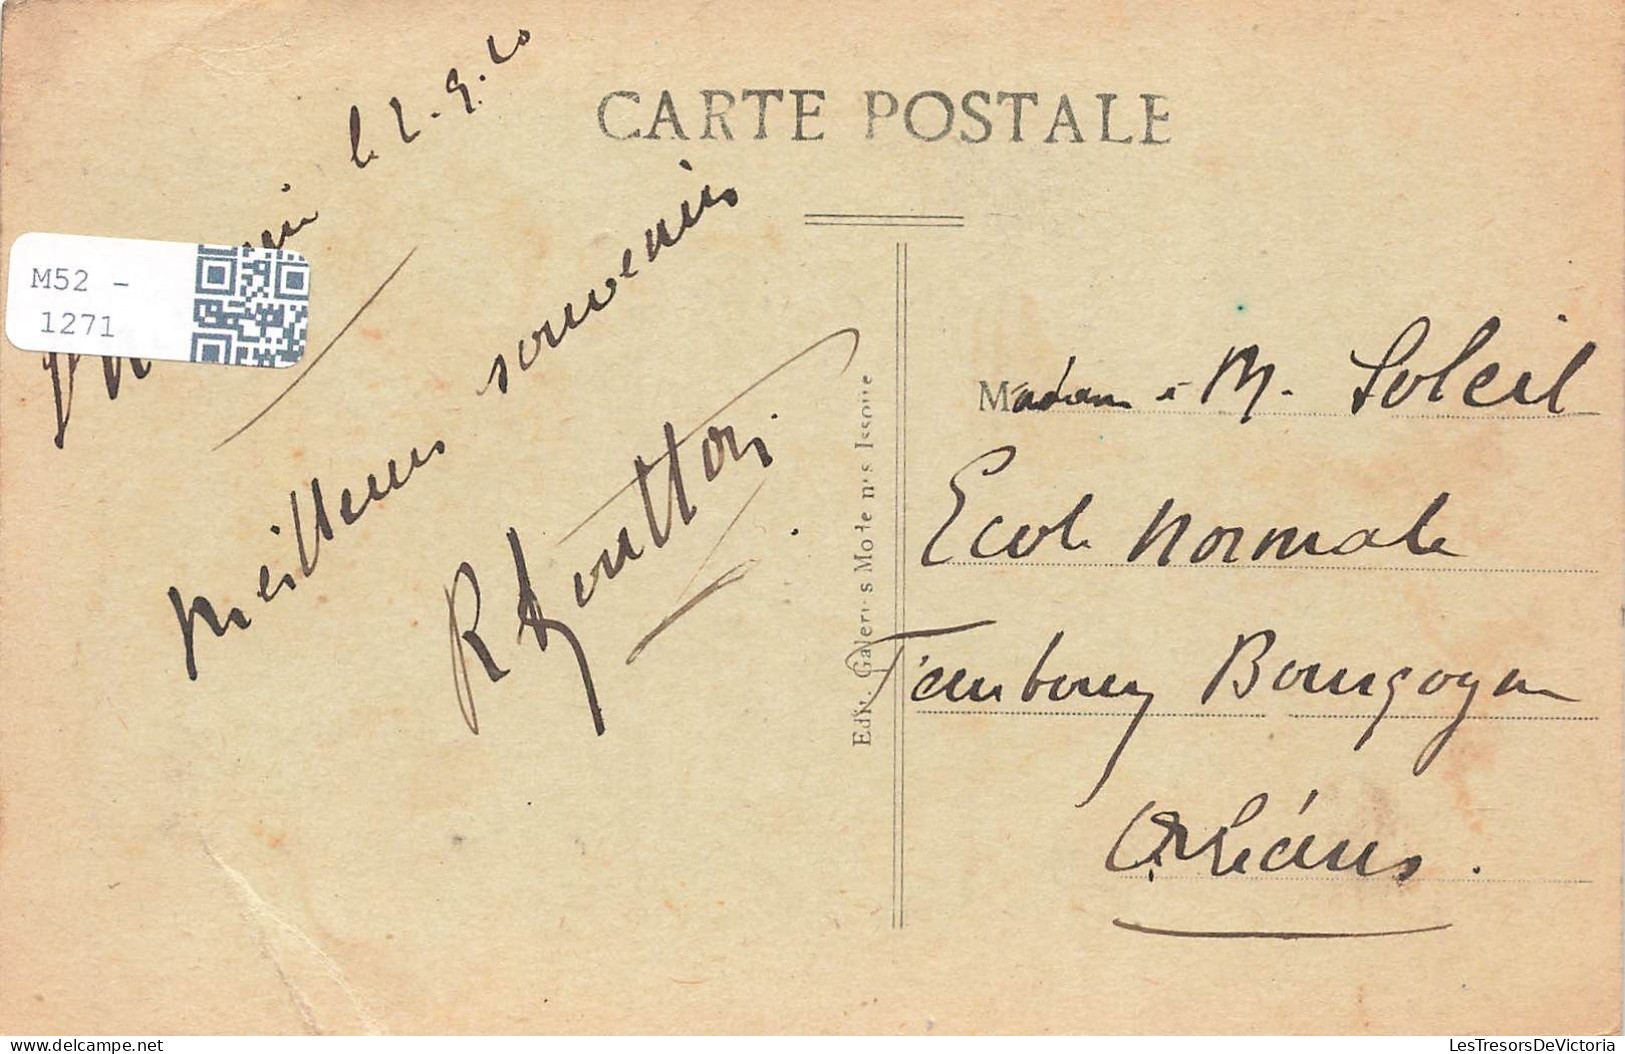 CARTE POSTALE
le 2.9.20
M52 -
1271
Meilleurs souvenirs
R
Edit. Galeries Modernes Issoire
Madame M. Soleil
Ecole Normale
Faubourg Bourgogne
Orléans.
LesTresorsDeVictoria
delcampe.net